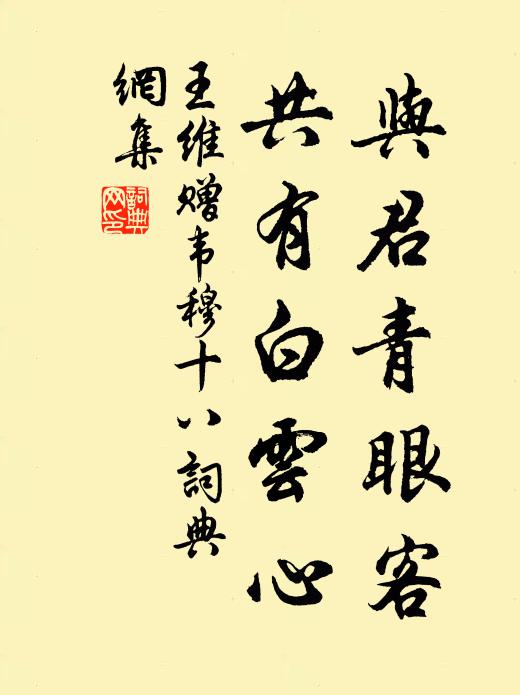 與君青眼客
共有白雲心
王維赠韦穆十八詞典
網集
詞典
网印